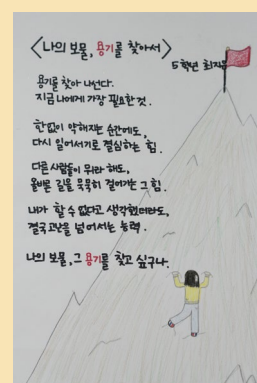 <나의 보물, 용기를 찾아서>
5학년 최자유
용기를 찾아 나선다.
지금 나에게 가장 필요한 것.
한없이 약해지는 순간에도,
다시 일어서기로 결심하는 힘.
다른 사람들이 뭐라 해도,
올바른 길을 묵묵히 걸어가는 그 힘.
내가 할 수 없다고 생각했더라도,
결국 고난을 넘어서는 능력.
나의 보물, 그 용기를 찾고 싶구나.